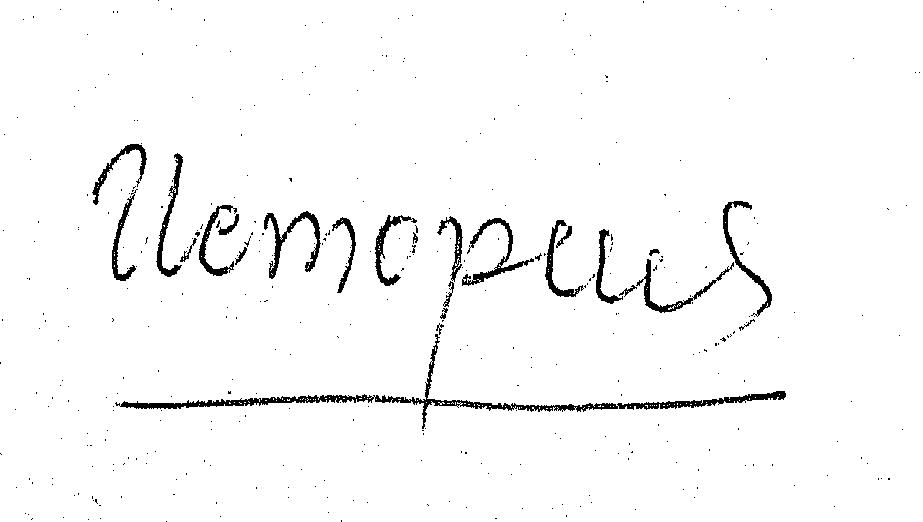 Истории